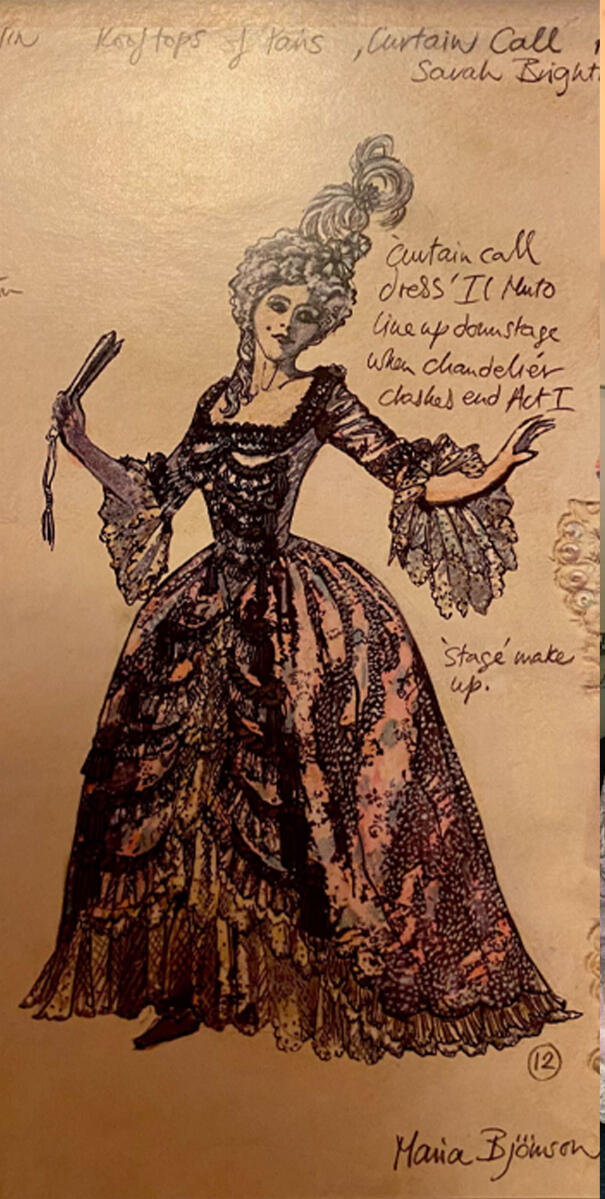 Rooftops of Paris, 'Curtain Call'
Sarah Bright
'Curtain call
dress' Il Muto
line up downstage
when chandelier
clashes end Act I
'stage' make
up.
12
Maria Björnson